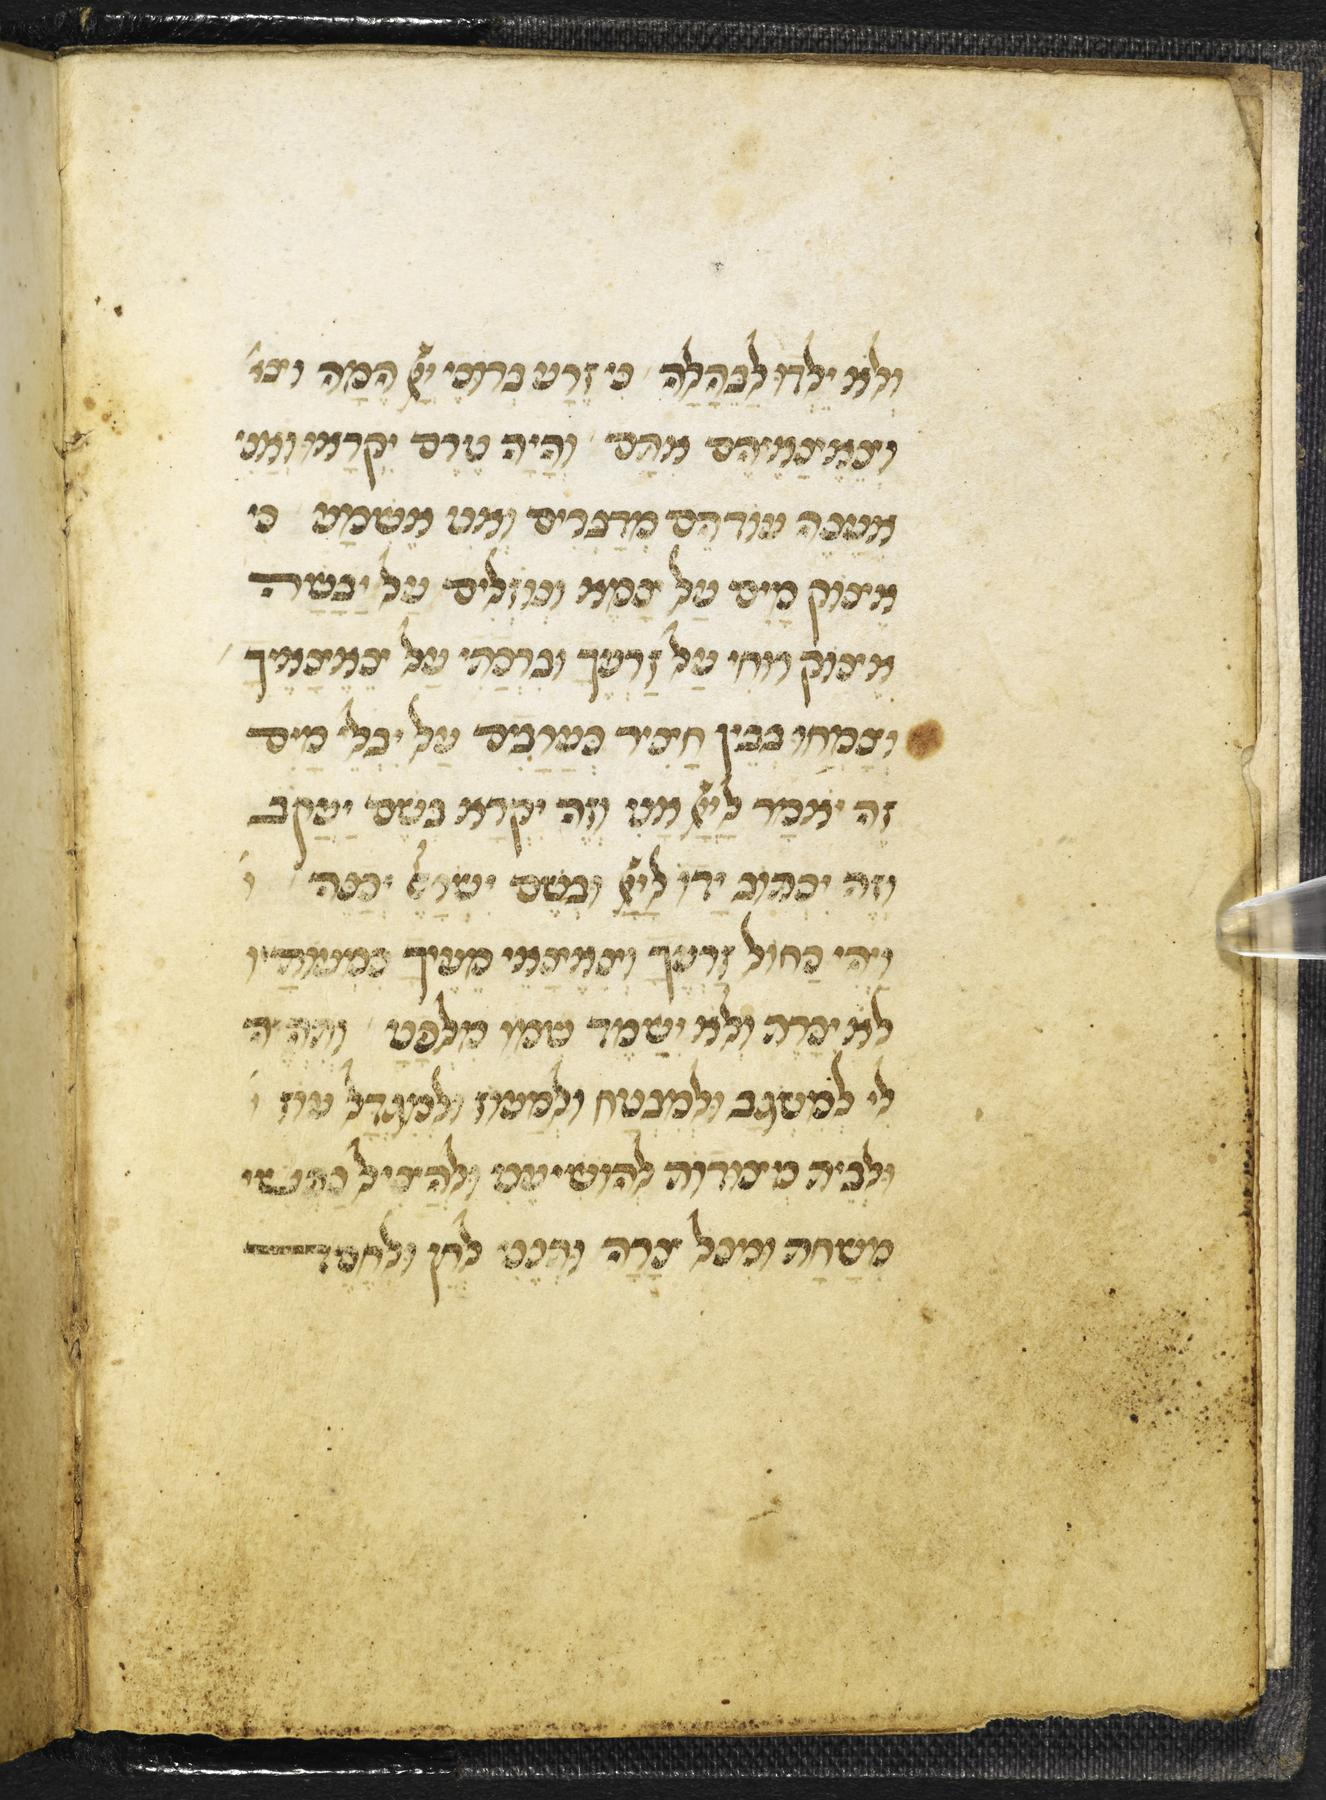 וְלֹא יֵלְדוּ לַבֶּהָלָה כִּי זֶרַע בְּרוּכֵי יְיָ הֵמָּה וצא
וְצֶאֱצָאֵיהֶם אִתָּם וְהָיָה טֶרֶם יִקְרָאוּ וַאֲנִי
אֶעֱנֶה עוֹד הֵם מְדַבְּרִים וַאֲנִי אֶשְׁמָע כִּי
אֶצּוֹק מַיִם עַל צָמֵא וְנוֹזְלִים עַל יַבָּשָׁה
אֶצּוֹק רוּחִי עַל זַרְעֶךָ וּבִרְכָתִי עַל צֶאֱצָאֶיךָ
וְצָמְחוּ בְּבֵין חָצִיר כַּעֲרָבִים עַל יִבְלֵי מָיִם
זֶה יֹאמַר לַייָ אָנִי וְזֶה יִקְרָא בְשֵׁם יַעֲקֹב
וְזֶה יִכְתּוֹב יָדוֹ לַייָ וּבְשֵׁם יִשְׂרָאֵל יְכַנֶּה
וַיְהִי כַחוֹל זַרְעֶךָ וְצֶאֱצָאֵי מֵעֶיךָ כִּמְעוֹתָיו
לֹא יִכָּרֵת וְלֹא יִשָּׁמֵד שְׁמוֹ מִלְּפָנָי וּתְהִי
לִי לְמִשְׂגָּב וּלְמִבְטָח וּלְמָעוֹז וּלְמִגְדַּל עוֹז
וּלְבֵית מְצוּדוֹת לְהוֹשִׁיעֵנִי וּלְהַצִּיל נַפְשִׁי
מִשַּׁחַת וּמִכָּל צָרָה וּתְנֵנִי לְחֵן וּלְחֶסֶד